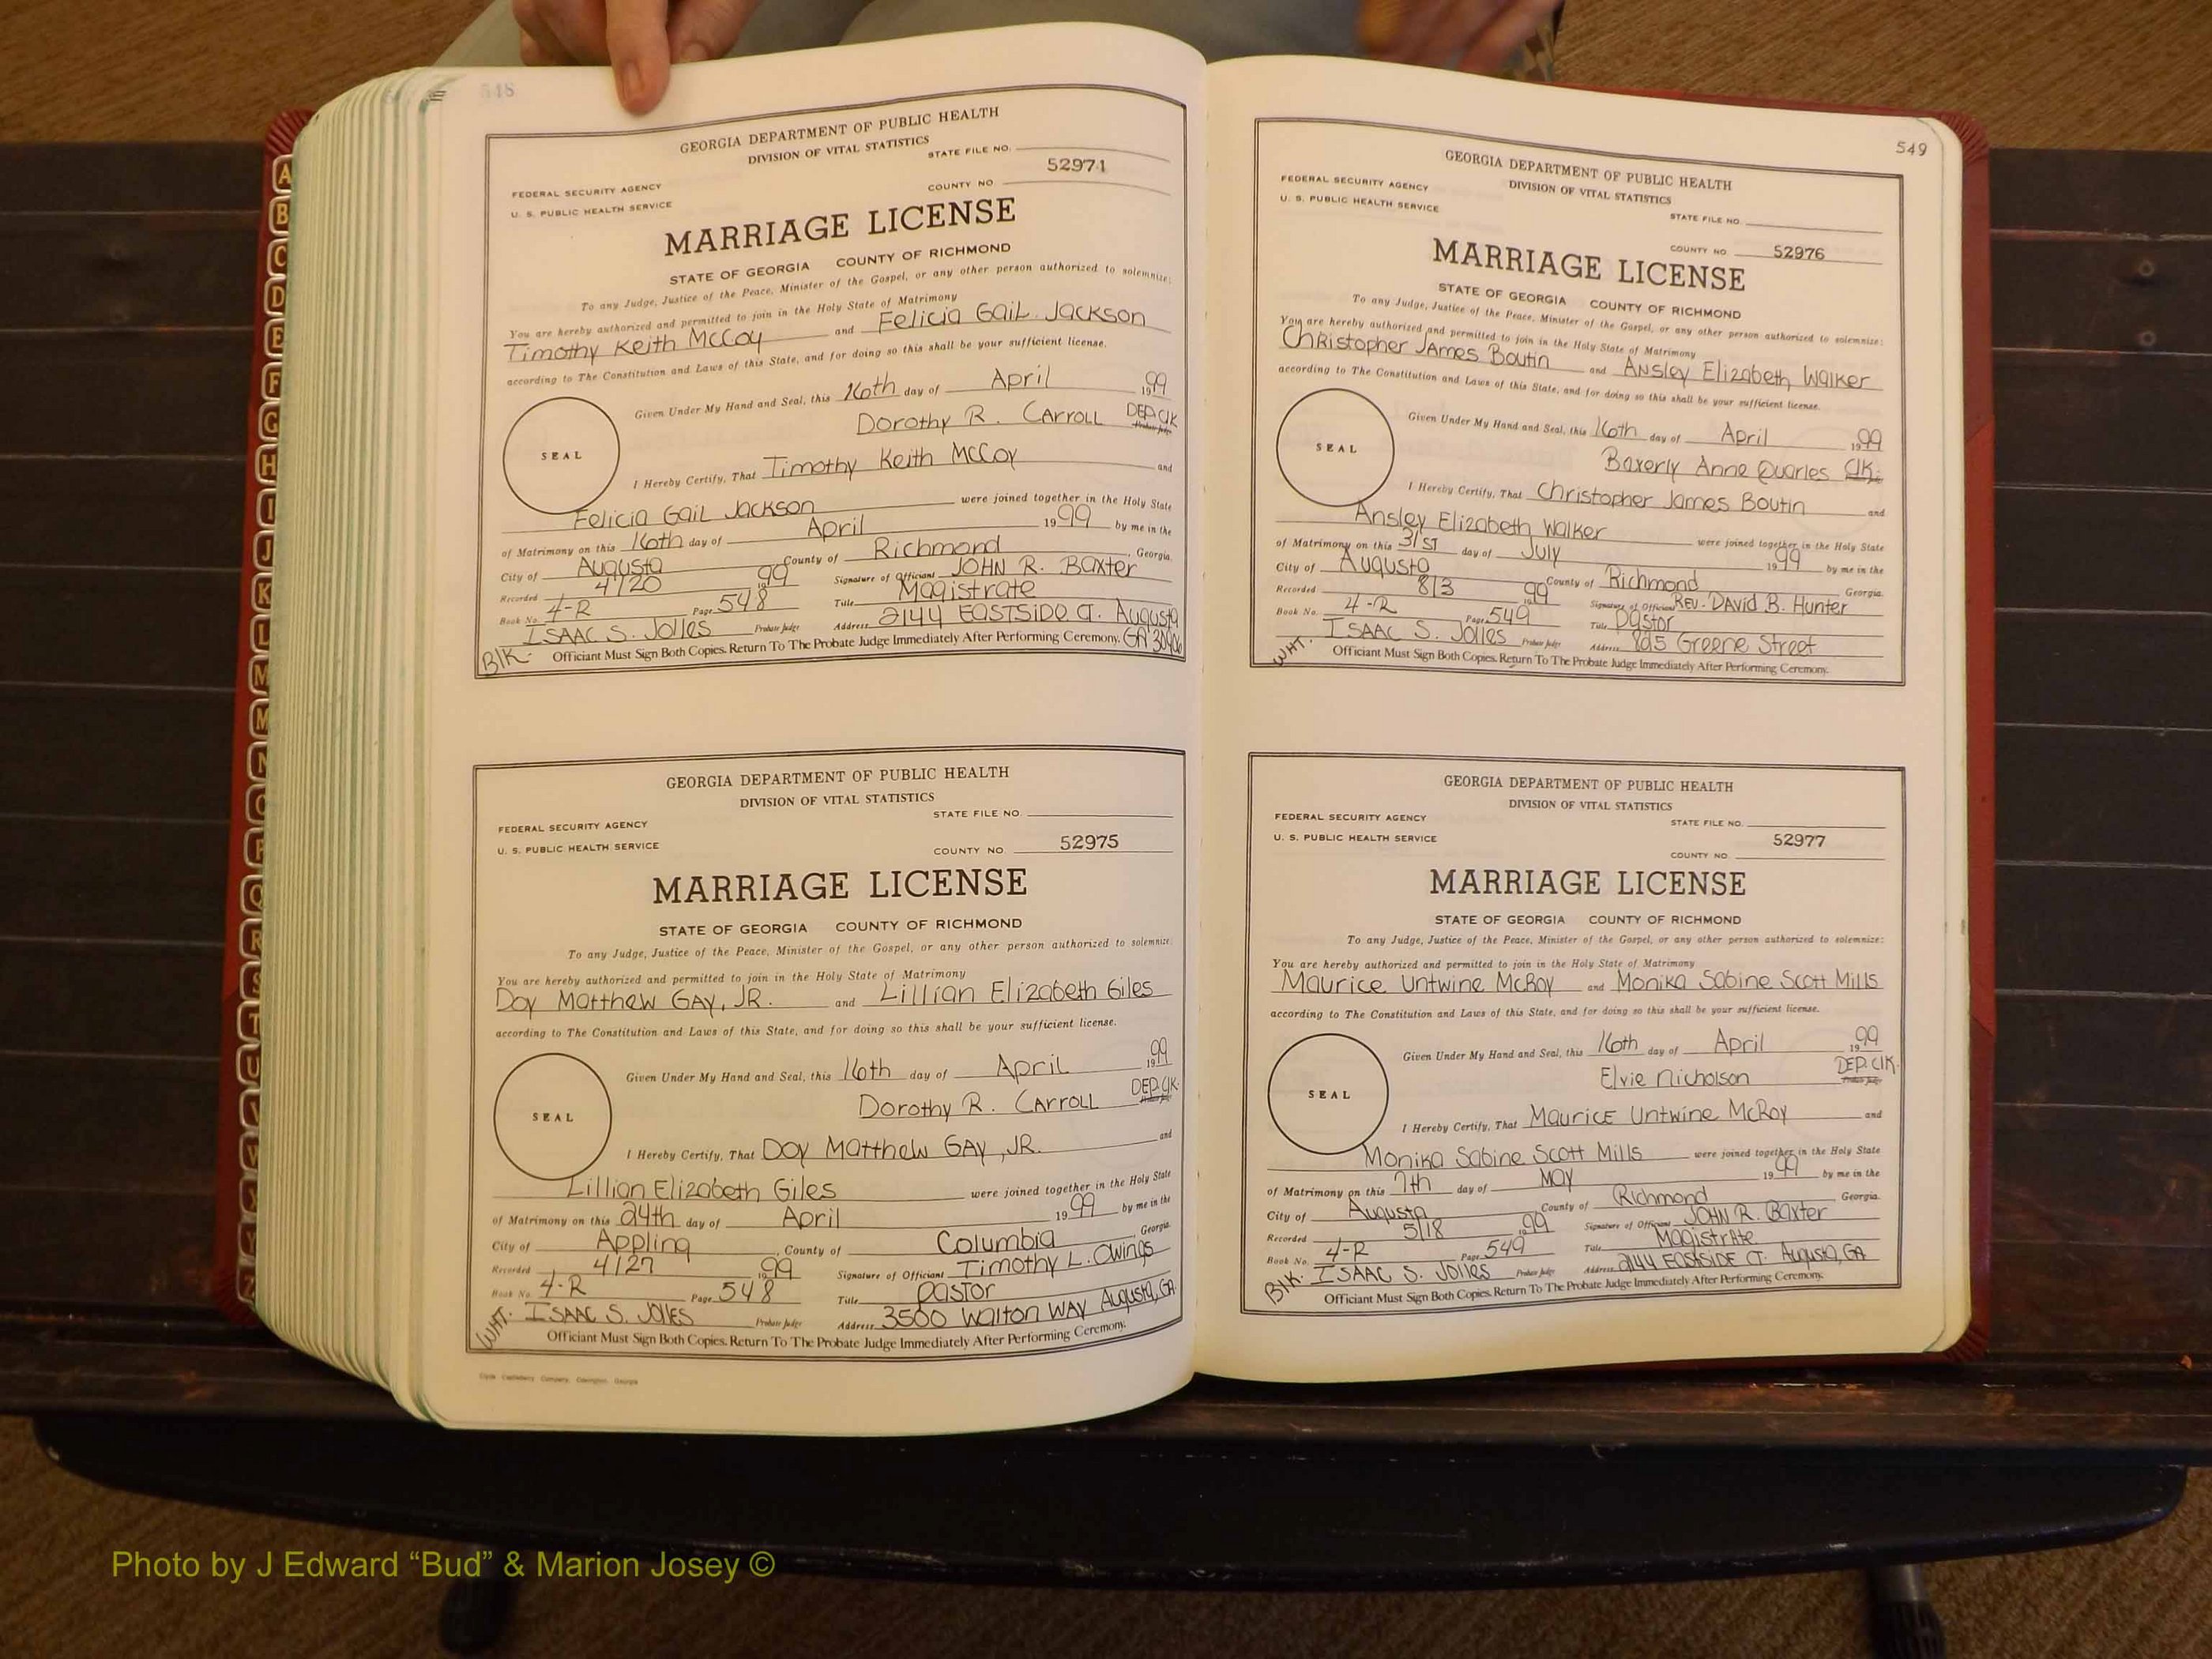 548
GEORGIA DEPARTMENT OF PUBLIC HEALTH
DIVISION OF VITAL STATISTICS
STATE FILE NO.
52971
FEDERAL SECURITY AGENCY
COUNTY NO.
U. S. PUBLIC HEALTH SERVICE
MARRIAGE LICENSE
STATE OF GEORGIA COUNTY OF RICHMOND
To any Judge, Justice of the Peace, Minister of the Gospel, or any other person authorized to solemnize:
You are hereby authorized and permitted to join in the Holy State of Matrimony
Timothy Keith McCoy and Felicia Gail Jackson
according to The Constitution and Laws of this State, and for doing so this shall be your sufficient license.
Given Under My Hand and Seal, this 16th day of April 1999
Dorothy R. Carroll DEP. Clk
Probate Judge
SEAL
I Hereby Certify, That Timothy Keith McCoy and
Felicia Gail Jackson were joined together in the Holy State
of Matrimony on this 16th day of April 1999 by me in the
City of Augusta County of Richmond, Georgia.
Recorded 4/20 1999 Signature of Officiant John R. Baxter
Book No. 4-R Page 548 Title Magistrate
Isaac S. Jolles Probate Judge Address 2144 Eastside Ct. Augusta
GA 30906
Blk. Officiant Must Sign Both Copies. Return To The Probate Judge Immediately After Performing Ceremony.
GEORGIA DEPARTMENT OF PUBLIC HEALTH
DIVISION OF VITAL STATISTICS
STATE FILE NO.
FEDERAL SECURITY AGENCY
U. S. PUBLIC HEALTH SERVICE
COUNTY NO. 52975
MARRIAGE LICENSE
STATE OF GEORGIA COUNTY OF RICHMOND
To any Judge, Justice of the Peace, Minister of the Gospel, or any other person authorized to solemnize:
You are hereby authorized and permitted to join in the Holy State of Matrimony
Doy Matthew Gay, Jr. and Lillian Elizabeth Giles
according to The Constitution and Laws of this State, and for doing so this shall be your sufficient license.
Given Under My Hand and Seal, this 16th day of April 1999
Dorothy R. Carroll DEP. Clk.
Probate Judge
SEAL
I Hereby Certify, That Doy Matthew Gay, Jr. and
Lillian Elizabeth Giles were joined together in the Holy State
of Matrimony on this 24th day of April 1999 by me in the
City of Appling, County of Columbia, Georgia.
Recorded 4/27 1999 Signature of Officiant Timothy L. Owings
Book No. 4-R Page 548 Title Pastor
Isaac S. Jolles Probate Judge Address 3500 Walton Way Augusta, GA.
Wht. Officiant Must Sign Both Copies. Return To The Probate Judge Immediately After Performing Ceremony.
549
GEORGIA DEPARTMENT OF PUBLIC HEALTH
DIVISION OF VITAL STATISTICS
FEDERAL SECURITY AGENCY
U. S. PUBLIC HEALTH SERVICE
STATE FILE NO.
COUNTY NO. 52976
MARRIAGE LICENSE
STATE OF GEORGIA COUNTY OF RICHMOND
To any Judge, Justice of the Peace, Minister of the Gospel, or any other person authorized to solemnize:
You are hereby authorized and permitted to join in the Holy State of Matrimony
Christopher James Boutin and Ansley Elizabeth Walker
according to The Constitution and Laws of this State, and for doing so this shall be your sufficient license.
Given Under My Hand and Seal, this 16th day of April 1999
Baverly Anne Quarles Clk.
SEAL
I Hereby Certify, That Christopher James Boutin and
Ansley Elizabeth Walker were joined together in the Holy State
of Matrimony on this 31st day of July 1999 by me in the
City of Augusta County of Richmond Georgia.
Recorded 8/3 1999 Signature of Officiant Rev. David B. Hunter
Book No. 4-R Page 549 Title Pastor
Isaac S. Jolles Probate Judge Address Greene Street
Wht. Officiant Must Sign Both Copies. Return To The Probate Judge Immediately After Performing Ceremony.
GEORGIA DEPARTMENT OF PUBLIC HEALTH
DIVISION OF VITAL STATISTICS
FEDERAL SECURITY AGENCY
STATE FILE NO.
U. S. PUBLIC HEALTH SERVICE
52977
COUNTY NO.
MARRIAGE LICENSE
STATE OF GEORGIA COUNTY OF RICHMOND
To any Judge, Justice of the Peace, Minister of the Gospel, or any other person authorized to solemnize:
You are hereby authorized and permitted to join in the Holy State of Matrimony
Maurice Untwine McRoy and Monika Sabine Scott Mills
according to The Constitution and Laws of this State, and for doing so this shall be your sufficient license.
Given Under My Hand and Seal, this 16th day of April 1999
Elvie Nicholson DEP. Clk.
Probate Judge
SEAL
I Hereby Certify, That Maurice Untwine McRoy and
Monika Sabine Scott Mills were joined together in the Holy State
of Matrimony on this 7th day of May 1999 by me in the
City of Augusta County of Richmond, Georgia.
Recorded 5/18 1999 Signature of Officiant John R. Baxter
Book No. 4-R Page 549 Title Magistrate
Blk. Isaac S. Jolles Probate Judge Address 2144 Eastside Ct. Augusta, GA
Officiant Must Sign Both Copies. Return To The Probate Judge Immediately After Performing Ceremony.
A
B
C
D
E
F
G
H
I
J
K
L
M
M
N
O
P
Q
R
S
T
U
V
W
X
Y
Z
Photo by J Edward “Bud” & Marion Josey ©